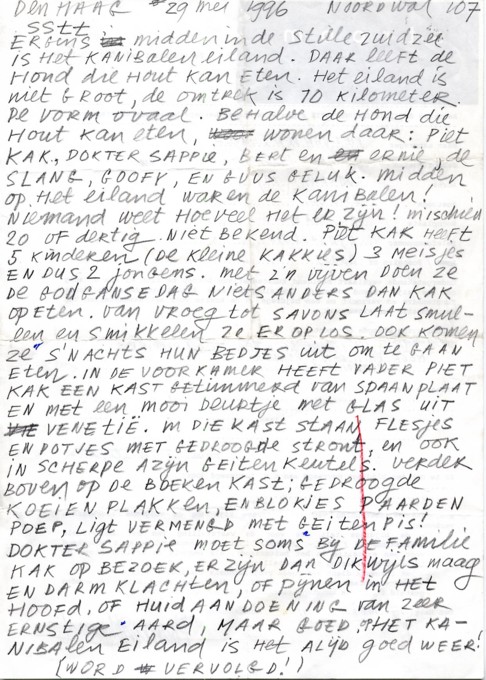 DEN HAAG 29 mei 1996 NOORDWAL 107
SSTT
ERGENS midden in de Stille zuidzee
is Het KANIBALEN eiland. DAAR leeft de
Hond die Hout KAN eten. Het eiland is
niet GROOT, de omtrek is 70 kilometer.
De vorm ovaal. BeHAlve de Hond die
Hout KAN eten, wonen daar: Piet
KAK, DOKTER SAPPIE, Bert en ernie, de
SLANG, GOOFY, EN GUUS GELUK. midden
op Het eiland waren de KANiBAlen!
Niemand weet Hoeveel Het er zijn! misschien
20 of dertig. Niet BeKend. Piet KAK Heeft
5 kinderen (De Kleine KAKKies) 3 meisjes
EN DUS 2 jongens. met z'n vijven DOEN ze
DE GODGANSE DAG NIETS ANDERS DAN KAK
OPETEN. van vroeg tot SAVONS LAAT smul-
len en smikkelen ze EROPLOS. OOK Komen
ze S'NACHTS HUN BEDJES uit om te GAAN
eten. IN DE VOORKAMER HEEFT VADER PIET
KAK EEN KAST GETIMMERD van SPAANPLAAT
EN met een mooi Deurtje met GLAS UIT
VENETIË. IN DIE KAST STAAN FLESJES
EN POTJES MET GEDROOGDE stront, en ook
IN SCHERPE AZIJN GEITEN KEUTELS. verder
BOVEN OP DE BOEKEN KAST; GEDROOGDE
KOEIEN PLAKKEN, EN BLOKJES PAARDEN
POEP, LIGT VERMENGD MET GEITEN PIS!
DOKTER SAPPIE moet soms BIJ DE FAMILIE
KAK OP BEZOEK, ER ZIJN DAN DIKWIJLS maag
EN DARM KLACHTEN, OF PIJNEN in HET
HOOFD. OF HUIDAANDOENING van zeer
ERNSTIGE AARD, MAAR GOED HET KA-
NIBALEN EILAND IS HET ALIJD goed WEER!
(WORD VERVOLGD!)